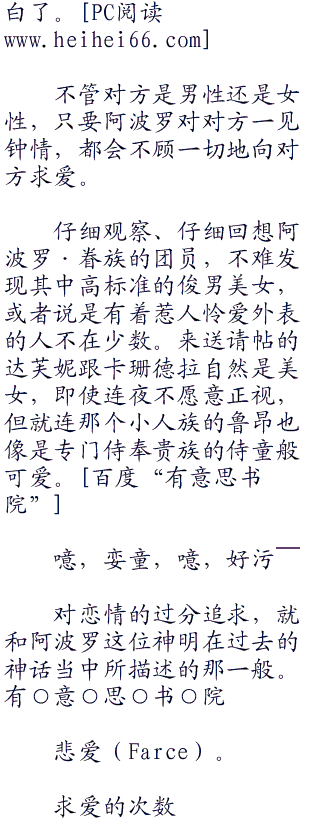 白了。[PC阅读
www.heihei66.com]
不管对方是男性还是女
性，只要阿波罗对对方一见
钟情，都会不顾一切地向对
方求爱。
仔细观察、仔细回想阿
波罗·眷族的团员，不难发
现其中高标准的俊男美女，
或者说是有着惹人怜爱外表
的人不在少数。来送请帖的
达芙妮跟卡珊德拉自然是美
女，即使连夜不愿意正视，
但就连那个小人族的鲁昂也
像是专门侍奉贵族的侍童般
可爱。[百度“有意思书
院”]
噫，娈童，噫，好污—
对恋情的过分追求，就
和阿波罗这位神明在过去的
神话当中所描述的那一般。
有○意○思○书○院
悲爱（Farce）。
求爱的次数